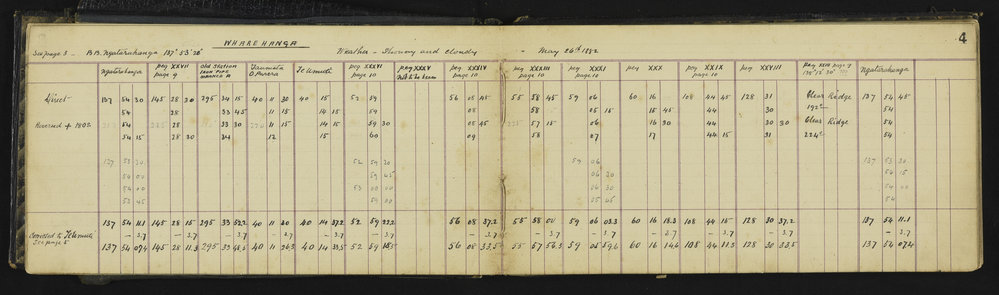 4
WHAREHANGA
See page 3 - B.B. Ngaturuhanga 137° 53' 28" Weather - Showery and cloudy - May 26th 1882
Ngaturuhanga peg XXVII page 9 Old Station IRON PIPE MARKED A Taumata O.Parera Te Umuti peg XXXVI page 10 peg XXXV peg XXXIV page 10 peg XXXIII page 10 peg XXXI page 10 peg XXX peg XXVIII Ngaturuhanga
Direct 137 54 30 145 28 30 295 34 15 40 11 30 40 15 52 59 56 05 45 55 58 45 59 06 60 16 108 44 45 128 31 Clear Ridge 137 54 45
54 28 33 45 11 15 14 15 59 08 58 05 15 15 45 44 30 192° 54
Reversed + 180° 28 33 30 11 15 14 15 59 30 05 45 57 15 06 16 30 44 30 30 Clear Ridge 54
54 15 28 30 34 12 15 60 09 58 07 17 44 15 31 224° 54
137 53 30 52 59 30 59 06 137 53 30
54 00 59 45 06 30 54 15
54 00 53 00 00 06 30 54 00
53 45 00 00 05 05 54
137 54 11.1 145 28 15 295 33 52.2 40 11 30 40 14 37.2 52 59 22.2 56 08 37.2 55 58 00 59 06 03.3 60 16 18.3 108 44 15 128 30 37.2 137 54 11.1
Corrected to Te Umuti - 3.7 - 3.7 - 3.7 - 3.7 - 3.7 - 3.7 - 3.7 - 3.7 - 3.7 - 3.7 - 3.7 - 3.7 - 3.7
See page 5
137 54 07.4 145 28 11.3 295 33 48.5 40 11 26.3 40 14 33.5 52 59 18.5 56 08 33.5 55 57 56.3 59 05 59.6 60 16 14.6 108 44 11.3 128 30 33.5 137 54 07.4